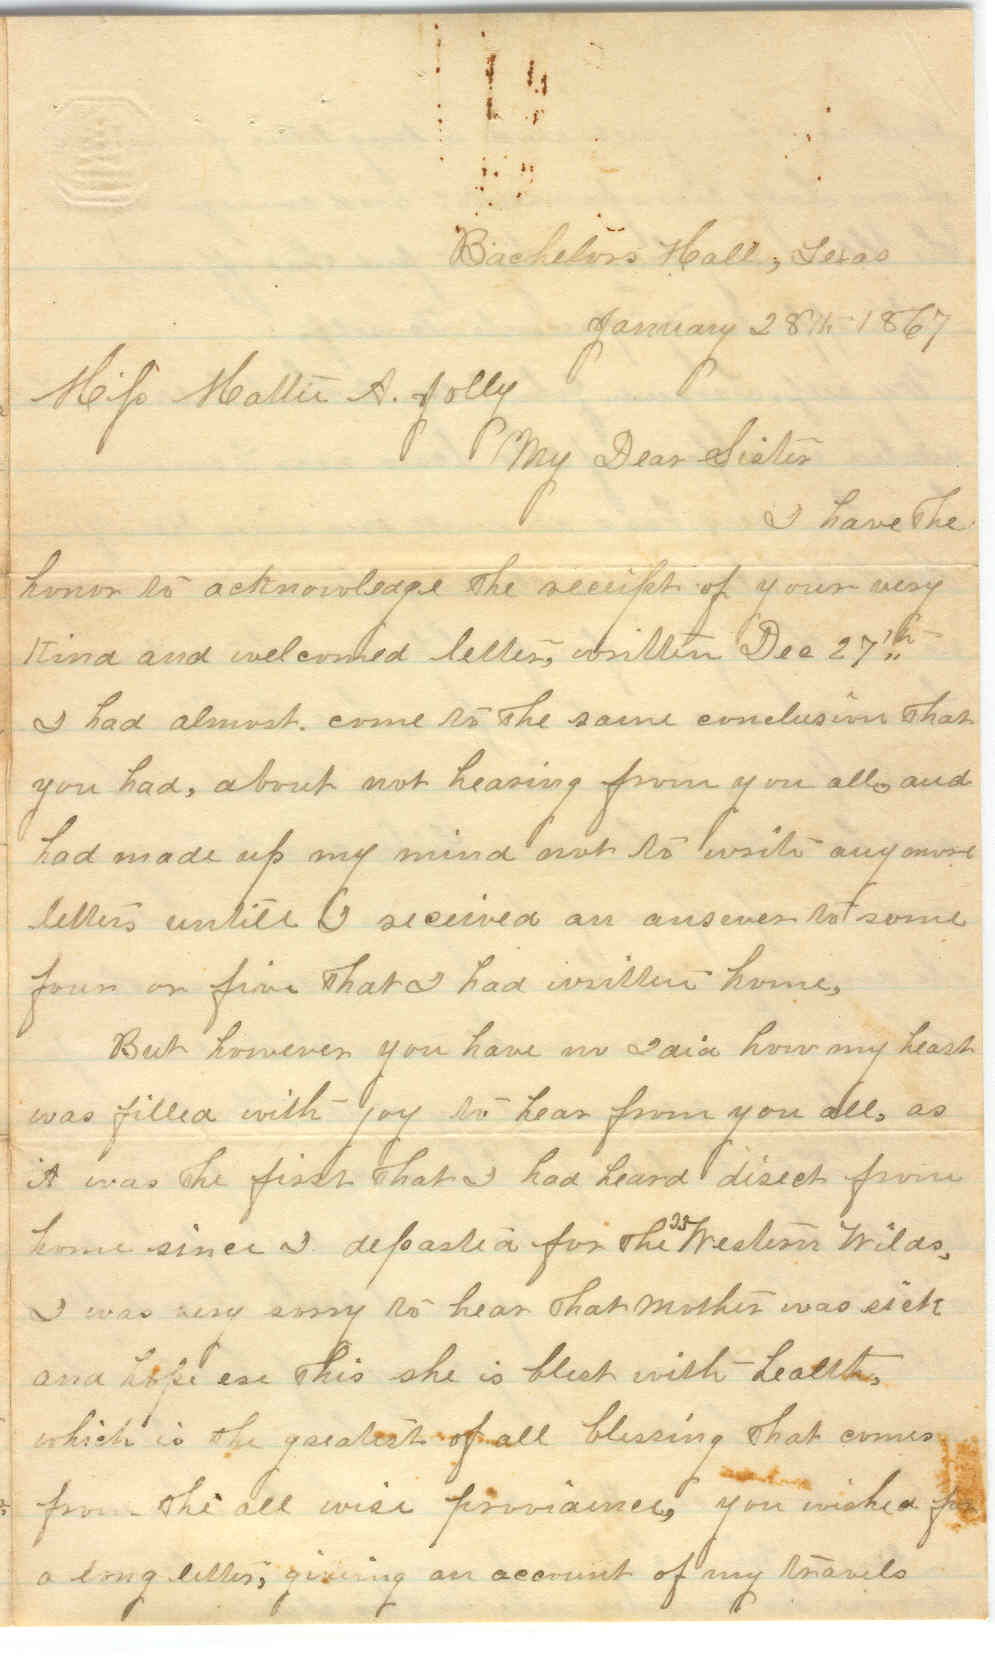 Bachelors Hall, Texas
January 28th 1867
Miss Mattie A. Jolly
My Dear Sister
I have the
honor to acknowledge the receipt of your very
Kind and welcomed letter, written Dec 27th
I had almost. come to the same conclusion that
you had, about not hearing from you all, and
had made up my mind not to write any more
letters untill I received an answer to some
four or five that I had written home,
But however you have no Idia how my heart
was filled with joy to hear from you all, as
it was the first that I had heard direct from
home since I departed for the Western Wilds,
I was very sorry to hear that Mother was sick
and hope ere this she is blest with health,
which is the greatest of all blessing that comes
from the all wise providence, you wished for
a long letter, giving an account of my travels